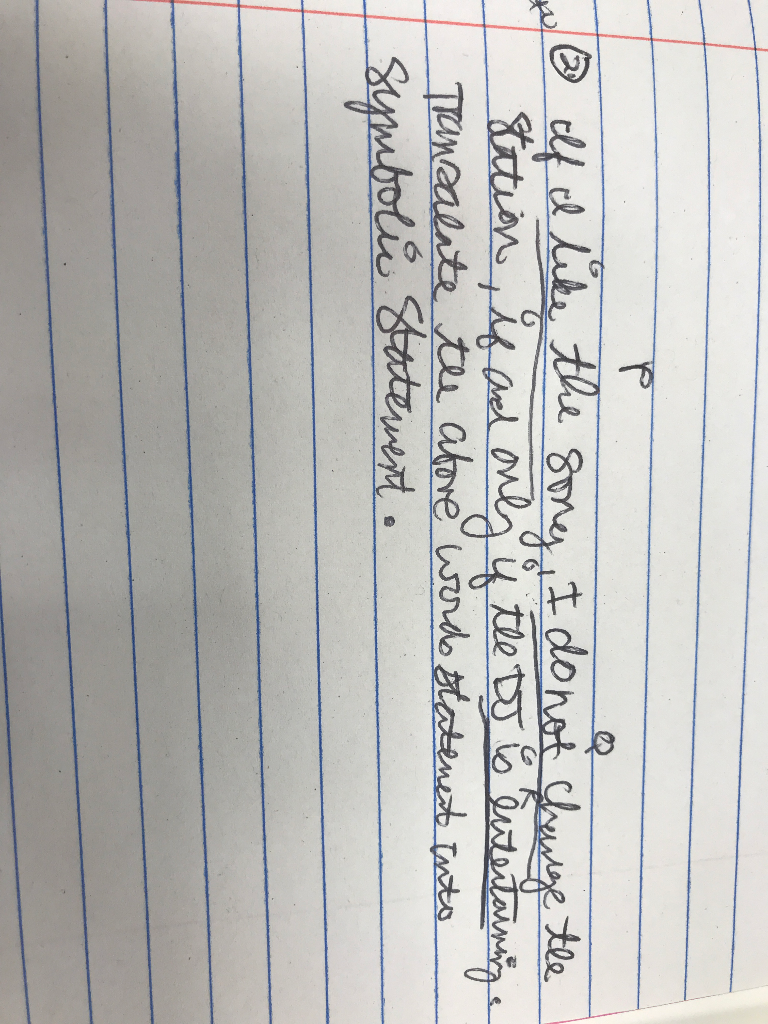 P
Q
② If I like the song, I do not change the
R
station, if and only if the DJ is entertaining.
Transalate the above words statement into
Symbolic Statement.